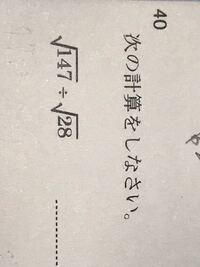 40 次の計算をしなさい。
√147 ÷ √28